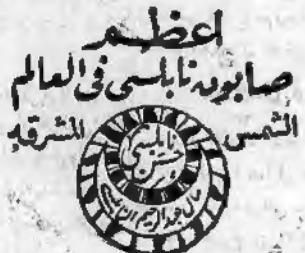 اعظم
صابون نابلسى فى العالم
الشمس المشرقه
نابلسى